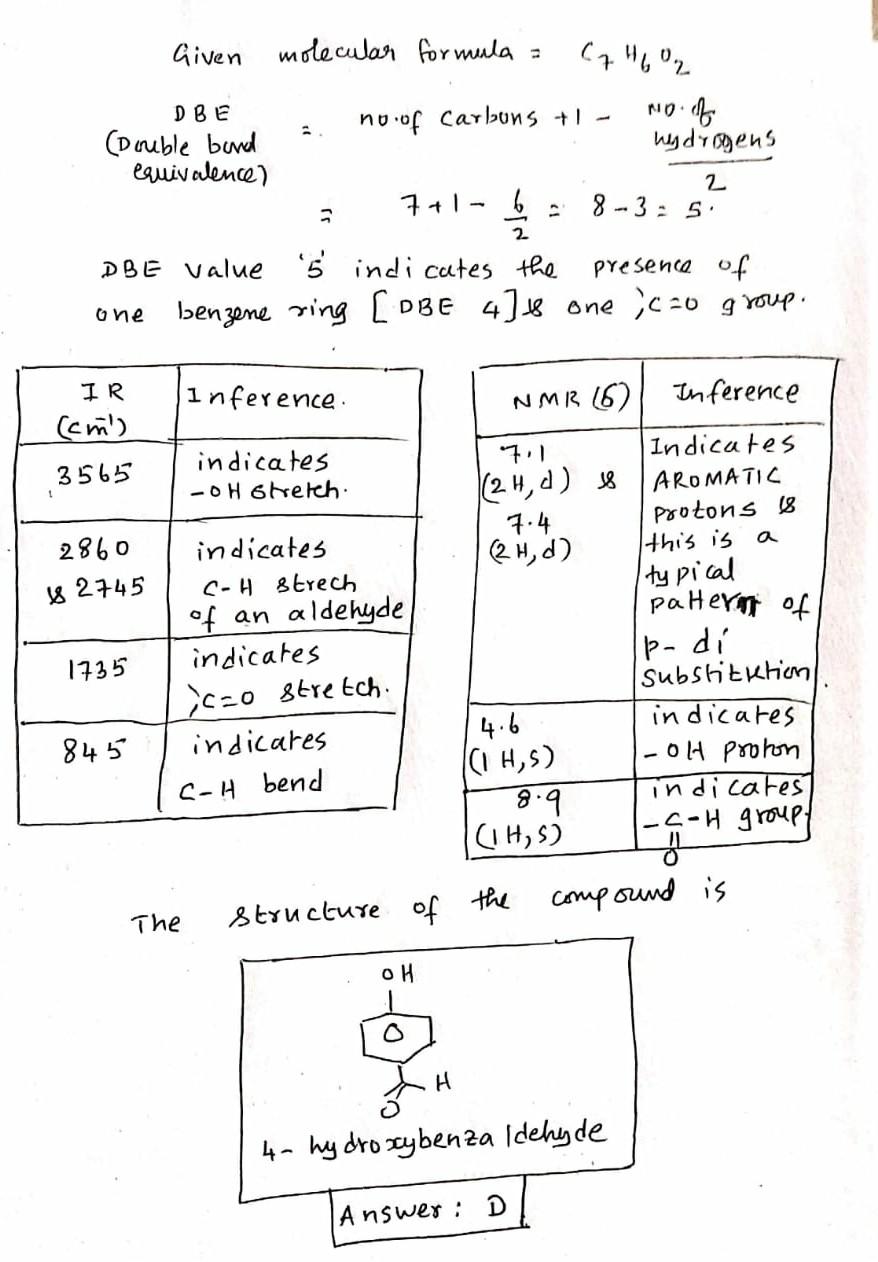 Given molecular formula = C7H6O2
DBE (Double bond equivalence) = no.of carbons +1 - No. of hydrogens / 2
= 7+1- 6/2 = 8-3 = 5.
DBE value '5' indicates the presence of
one benzene ring [DBE 4] & one >C=O group.
IR (cm-1) Inference.
3565 indicates
-OH stretch.
2860 indicates
& 2745 C-H strech
of an aldehyde
1735 indicates
>C=O stretch.
845 indicates
C-H bend
NMR (δ) Inference
7.1 Indicates
(2H, d) & AROMATIC
7.4 protons &
(2H, d) this is a
typical
pattern of
p- di
substitution.
4.6 indicates
(1H, s) -OH proton
8.9 indicates
(1H, s) -C-H group
O
The structure of the compound is
OH
H
O
4- hydroxybenzaldehyde
Answer: D